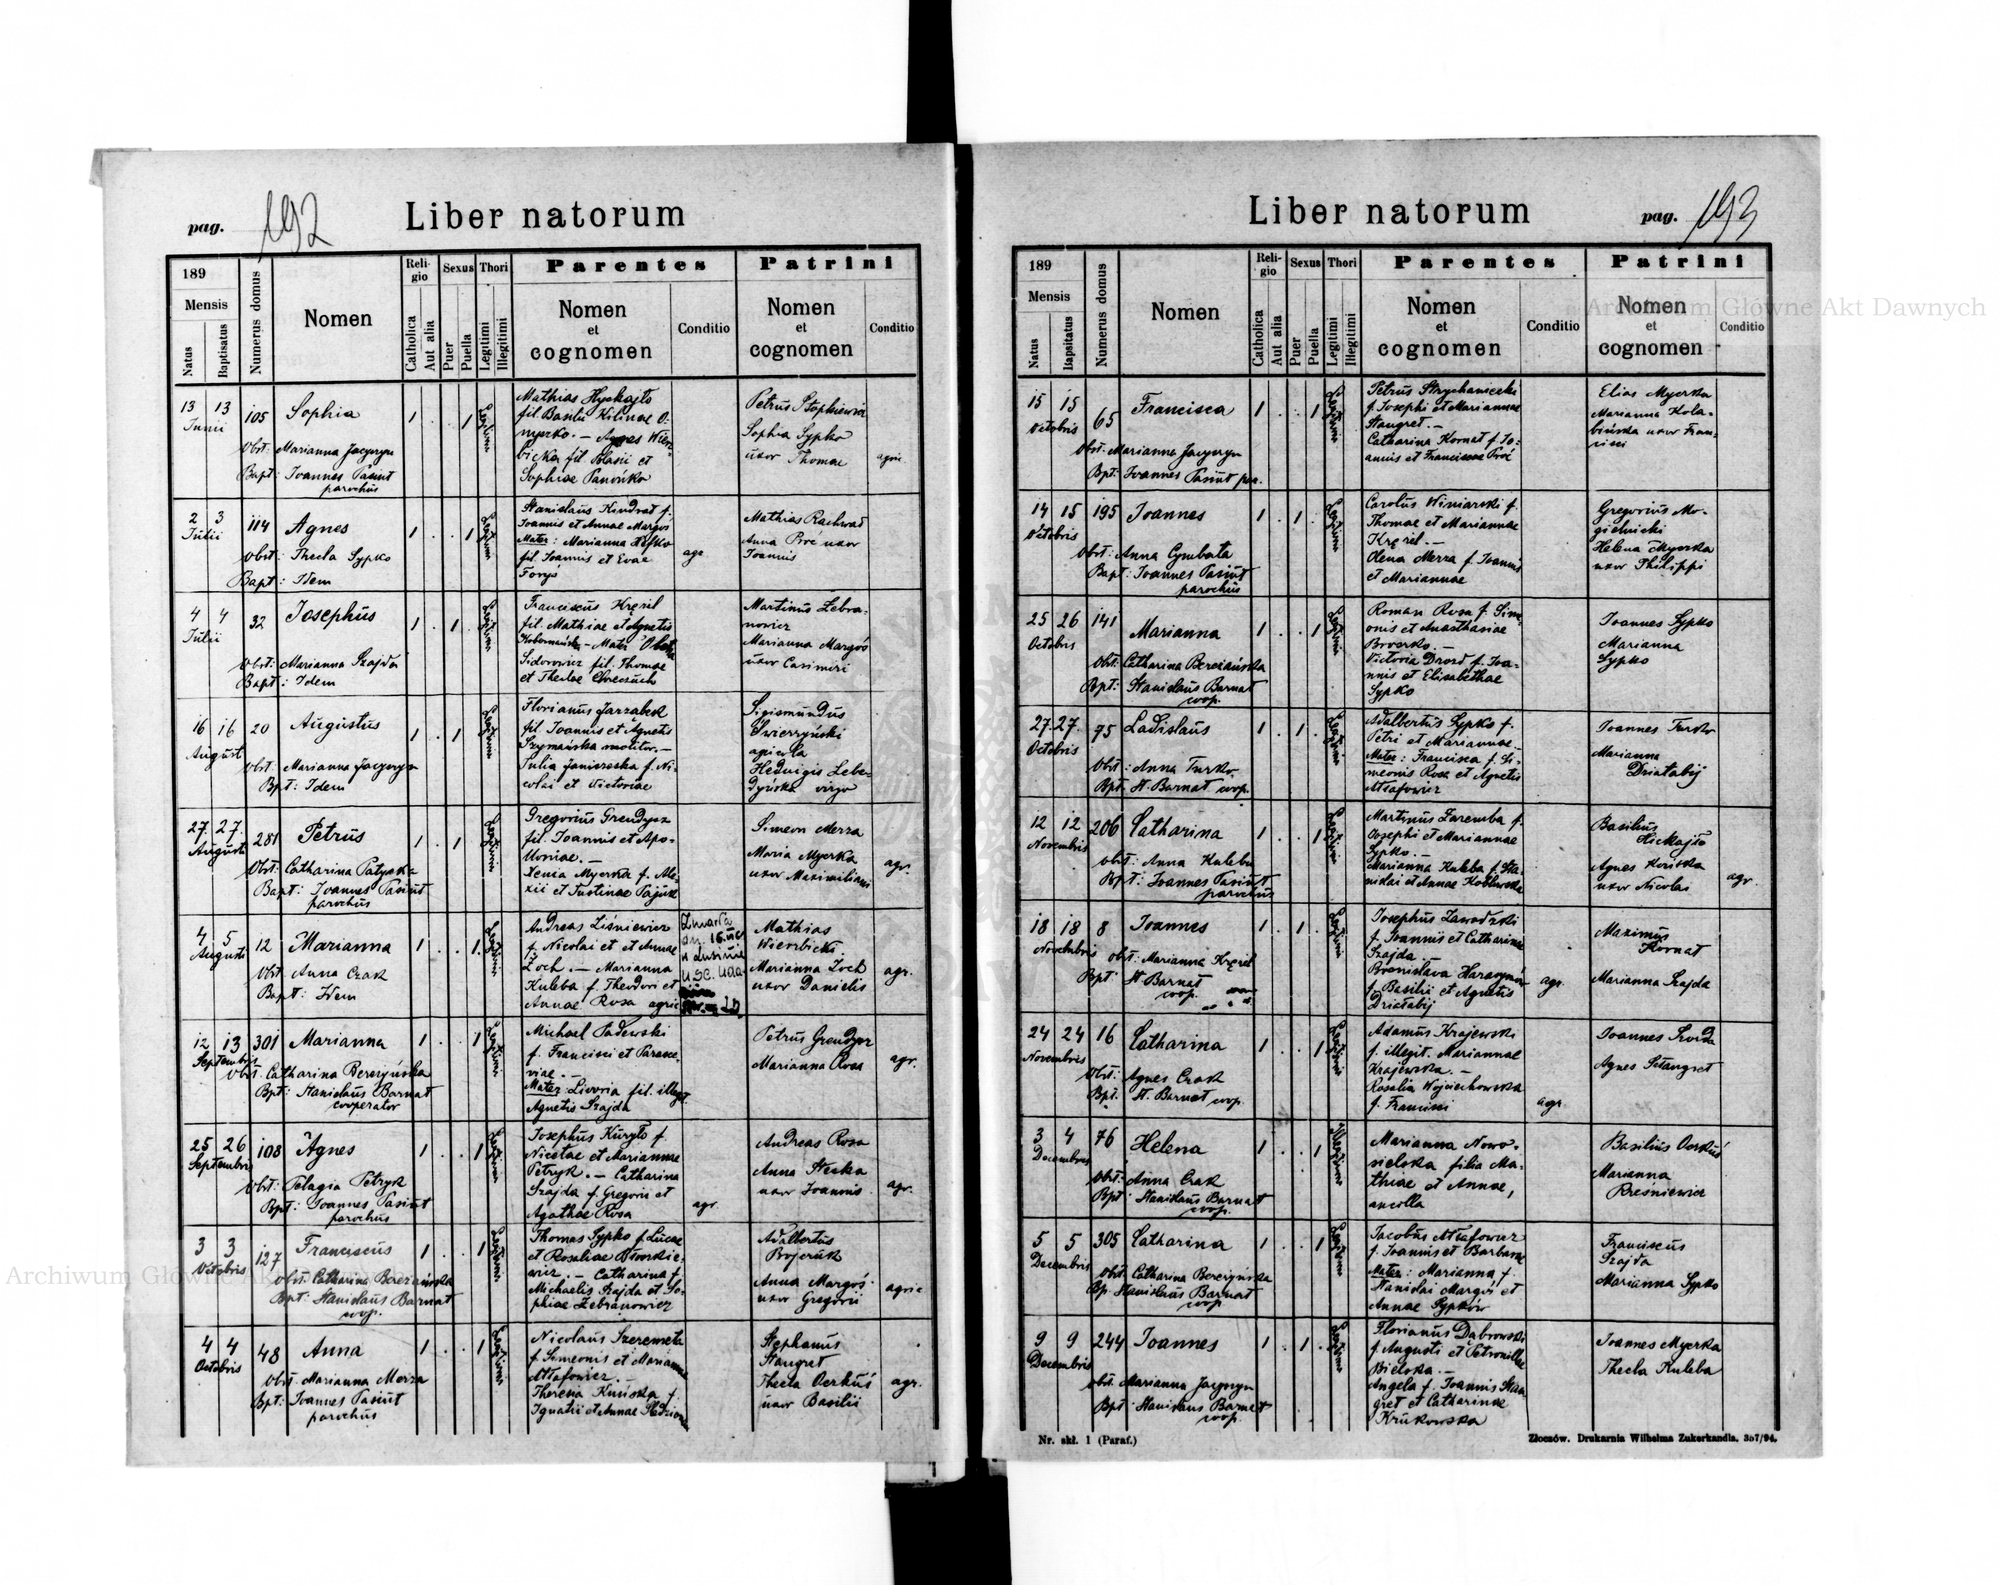 pag. 192
Liber natorum
189
Mensis
Natus
Baptisatus
Numerus domus
Nomen
Religio
Catholica
Aut alia
Sexus
Puer
Puella
Thori
Legitimi
Illegitimi
Parentes
Nomen
et
cognomen
Conditio
Patrini
Nomen
et
cognomen
Conditio
13 13
Junii
105
Sophia
Obst: Marianna Jacyszyn
Bapt: Joannes Pasiut
parochus
Mathias
fil. Basilii
Agnes
fil. Blasii et
Sophiae
Petrus
Sophia Sypko
uxor Thomae
agric.
2 3
Julii
114
Agnes
Obst: Thecla Sypko
Bapt: Idem
Stanislaus Kindrat f.
Joannis et Annae Margoś
Mater: Marianna
fil. Joannis et Evae
agr
Mathias Rachwał
Anna Proć uxor
Joannis
4 4
Julii
32
Josephus
Obst: Marianna Szajda
Bapt: Idem
Franciscus Kręzil
fil. Mathiae et Agnetis
Mater
Sidorowicz fil. Thomae
et Theclae
Martinus Zebra-
nowicz
Marianna Margoś
uxor Casimiri
16 16
Augusti
20
Augustus
Obst: Marianna Jacyszyn
Bpt: Idem
Florianus Jarząbek
fil. Joannis et Agnetis
Szymańska molitor.
Julia Janiszeska f. Ni-
colai et Victoriae
Sigismundus
Swierzyński
agricola
Hedvigis
virgo
27. 27.
Augusti
281
Petrus
Obst: Catharina
Bapt: Joannes Pasiut
parochus
Gregorius Grendysz
fil. Joannis et Apo-
lloniae. –
Xenia Myerka f. Ale-
xii et Justinae
Simeon Merza
Maria Myerka
uxor Maximiliani
agr.
4 5
Augusti
12
Marianna
Obst: Anna Czak
Bapt: Idem
Andreas Liśniewicz
f. Nicolai et et Annae
Zoch. – Marianna
Kuleba f. Theodori et
Annae Rosa agric
Zmarła
dn.
Mathias
Wierzbicki
Marianna Zoch
uxor Danielis
agr.
12 13
Septembris
301
Marianna
Obst. Catharina Bereżyńska
Bpt: Stanislaus Barnat
cooperator
Michael Padewski
f. Francisci et Parasce-
viae. –
Mater: fil. illegit.
Agnetis Szajda
Petrus Grendysz
Marianna Rosa
agr.
25 26
Septembris
108
Agnes
Obst: Pelagia Petryk
Bpt: Joannes Pasiut
parochus
Josephus Kuryło f.
Nicetae et Mariannae
Petryk. – Catharina
Szajda f. Gregorii et
Agathae Rosa
agr
Andreas Rosa
Anna
uxor Joannis
agr.
3 3
Octobris
127
Franciscus
Obst: Catharina Bereżańska
Bpt: Stanislaus Barnat
coop.
Thomas Sypko f. Lucae
et Rosaliae
Catharina f.
Michaelis Szajda et So-
phiae Zebranowicz
Adalbertus
Anna Margoś
uxor Gregorii
agric
4 4
Octobris
48
Anna
Obst. Marianna Merza
Bpt: Joannes Pasiut
parochus
Nicolaus Szeremeta
f. Simeonis et Mariannae
Therena f.
Ignatii et Annae
Stephanus
Stangret
Thecla Oerkuś
uxor Basilii
agr.
Liber natorum
pag. 193
189
Mensis
Natus
Bapsitatus
Numerus domus
Nomen
Religio
Catholica
Aut alia
Sexus
Puer
Puella
Thori
Legitimi
Illegitimi
Parentes
Nomen
et
cognomen
Conditio
Patrini
Nomen
et
cognomen
Conditio
15 15
Octobris
65
Francisca
Obst: Marianna Jacyszyn
Bpt: Joannes Pasiut par.
Petrus
f. Josephi et Mariannae
Stangret. –
Catharina Kornat f. Jo-
annis et Franciscae Proć
Elias Myerka
Marianna Kola-
bińska uxor Fran-
cisci
14 15
Octobris
195
Joannes
Obst: Anna Cymbała
Bapt: Joannes Pasiut
parochus
Carolus Winiarski f.
Thomae et Mariannae
Kręzil. –
Olena Merza f. Joannis
et Mariannae
Gregorius Mo-
gielnicki
Helena Myerka
uxor Philippi
25 26
Octobris
141
Marianna
Obst: Catharina Bereżańska
Bpt: Stanislaus Barnat
coop.
Roman Rosa f. Sime-
onis et Anasthasiae
Victoria Drozd f. Joa-
nnis et Elisabethae
Sypko
Joannes Sypko
Marianna
Sypko
27. 27.
Octobris
75
Ladislaus
Obst: Anna Turko
Bpt: St. Barnat coop.
Adalbertus Sypko f.
Petri et Mariannae. –
Mater: Francisca f. Si-
meonis Rosa et Agnetis
Joannes Turko
Marianna
Działabij
12 12
Novembris
206
Catharina
Obst: Anna Kuleba
Bpt: Joannes Pasiut
parochus
Martinus Zaremba f.
Josephi et Mariannae
Sypko. –
Marianna Kuleba f. Sta-
nislai et Annae
Basilius
Hickajło
Agnes
uxor Nicolai
agr.
18 18
Novembris
8
Joannes
Obst: Marianna Kręzil
Bpt: St Barnat
coop.
Josephus Zawadzki
f. Joannis et Catharinae
Szajda
Bronislava
f. Basilii et Agnetis
Działabij
agr.
Maximus
Kornat
Marianna Szajda
24 24
Novembris
16
Catharina
Obst: Agnes Czak
Bpt. St. Barnat coop.
Adamus Krajewski
f. illegit. Mariannae
Krajewska. –
Rosalia Wojciechowska
f. Francisci
agr.
Joannes
Agnes Stangret
3 4
Decembris
76
Helena
Obst: Anna Czak
Bpt: Stanislaus Barnat
coop.
Marianna Nowo-
sielska filia Ma-
thiae et Annae,
ancilla
Basilius Oerkuś
Marianna
5 5
Decembris
305
Catharina
Obst: Catharina Bereżyńska
Bp. Stanislaus Barnat
coop
Jacobus
f. Joannis et Barbarae
Mater: Marianna f.
Stanislai Margoś et
Annae Sypków
Franciscus
Szajda
Marianna Sypko
9 9
Decembris
244
Joannes
Obst. Marianna Jacyszyn
Bpt: Stanislaus Barnat
coop.
Florianus Dąbrowski
f. Augusti et Petronillae
Bielska. –
Angela f. Joannis Stan-
gret et Catharinae
Krukowska
Joannes Myerka
Thecla Kuleba
Nr. skł. 1 (Paraf.)
Złoczów. Drukarnia Wilhelma Zukerkandla. 357/94.
Archiwum Główne Akt Dawnych
Archiwum Główne Akt Dawnych